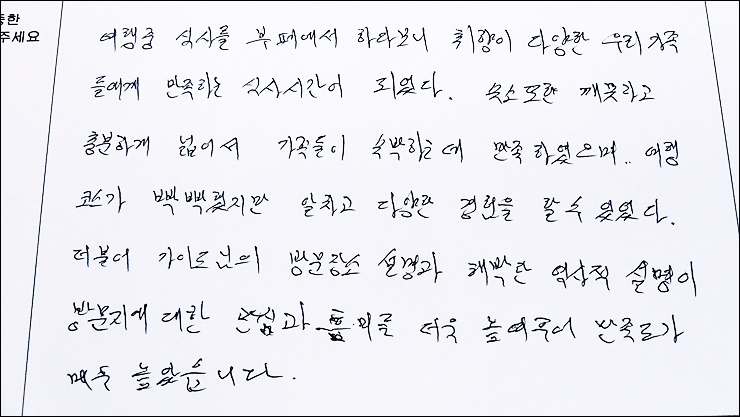 중한
주세요
여행중 식사를 부페에서 하다보니 취향이 다양한 우리가족
들에게 만족하는 식사시간이 되었다. 숙소또한 깨끗하고
충분하게 넓어서 가족들이 숙박하는데 만족하였으며.. 여행
코스가 빡빡했지만 알차고 다양한 경험을 할수 있었다.
더불어 가이드님의 방문장소 설명과 해박한 역사적 설명이
방문지에 대한 관심과 흥미를 더욱 높여주어 만족도가
매우 높았습니다.